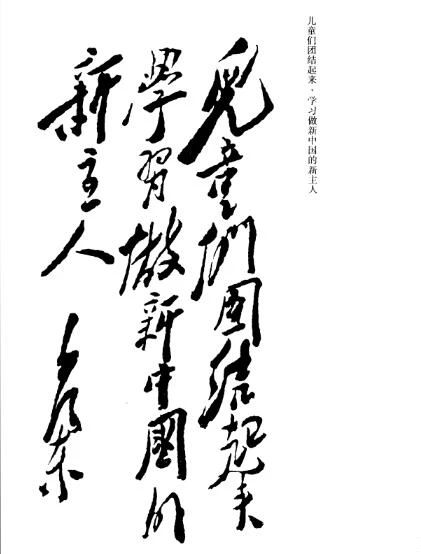 儿童们团结起来·学习做新中国的新主人
兒童們團結起来
學習做新中國的
新主人
毛泽东